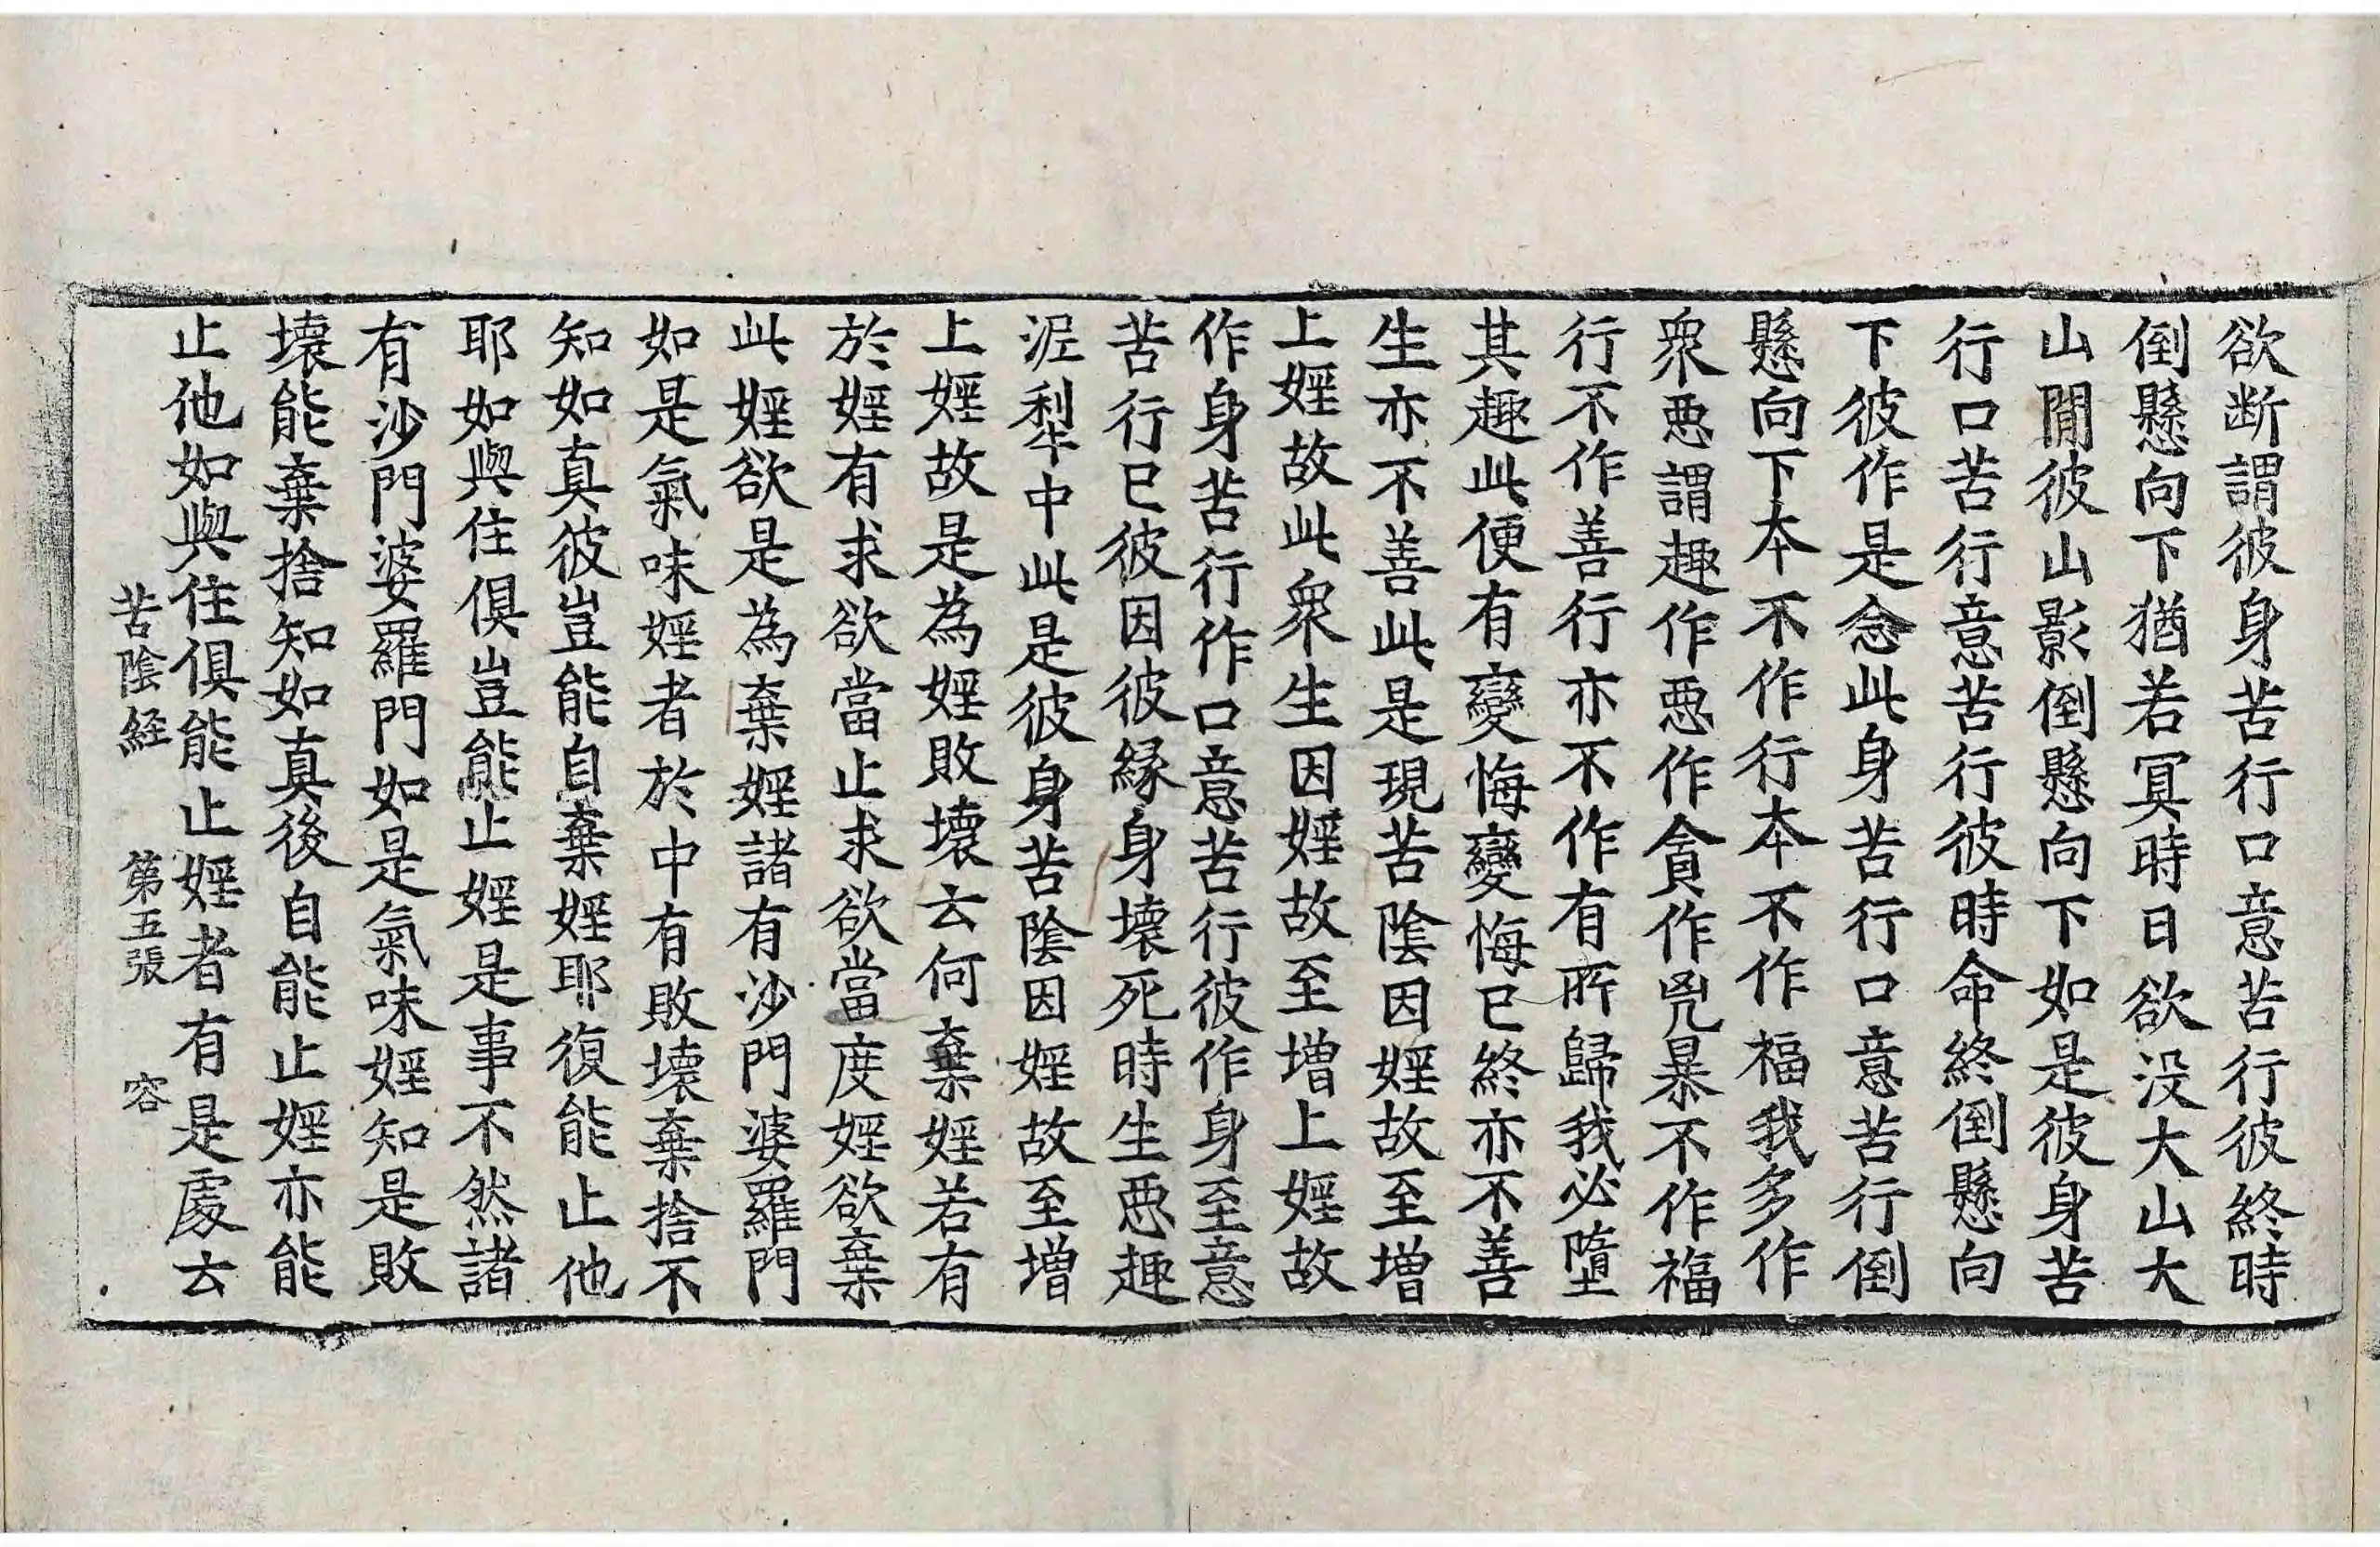 欲断謂彼身苦行口意苦行彼終時
倒懸向下猶若冥時日欲没大山大
山閒彼山影倒懸向下如是彼身苦
行口苦行意苦行彼時命終倒懸向
下彼作是念此身苦行口意苦行倒
懸向下本不作行本不作福我多作
衆惡謂趣作惡作貪作兇暴不作福
行不作善行亦不作有所歸我必墮
其趣此便有變悔變悔已終亦不善
生亦不善此是現苦陰因婬故至增
上婬故此衆生因婬故至增上婬故
作身苦行作口意苦行彼作身至意
苦行已彼因彼緣身壞死時生惡趣
泥犁中此是彼身苦陰因婬故至增
上婬故是為婬敗壞云何棄婬若有
於婬有求欲當止求欲當度婬欲棄
此婬欲是為棄婬諸有沙門婆羅門
如是氣味婬者於中有敗壞棄捨不
知如真彼豈能自棄婬耶復能止他
耶如與住俱豈能止婬是事不然諸
有沙門婆羅門如是氣味婬知是敗
壞能棄捨知如真後自能止婬亦能
止他如與住俱能止婬者有是處云
苦陰経　第五張　容